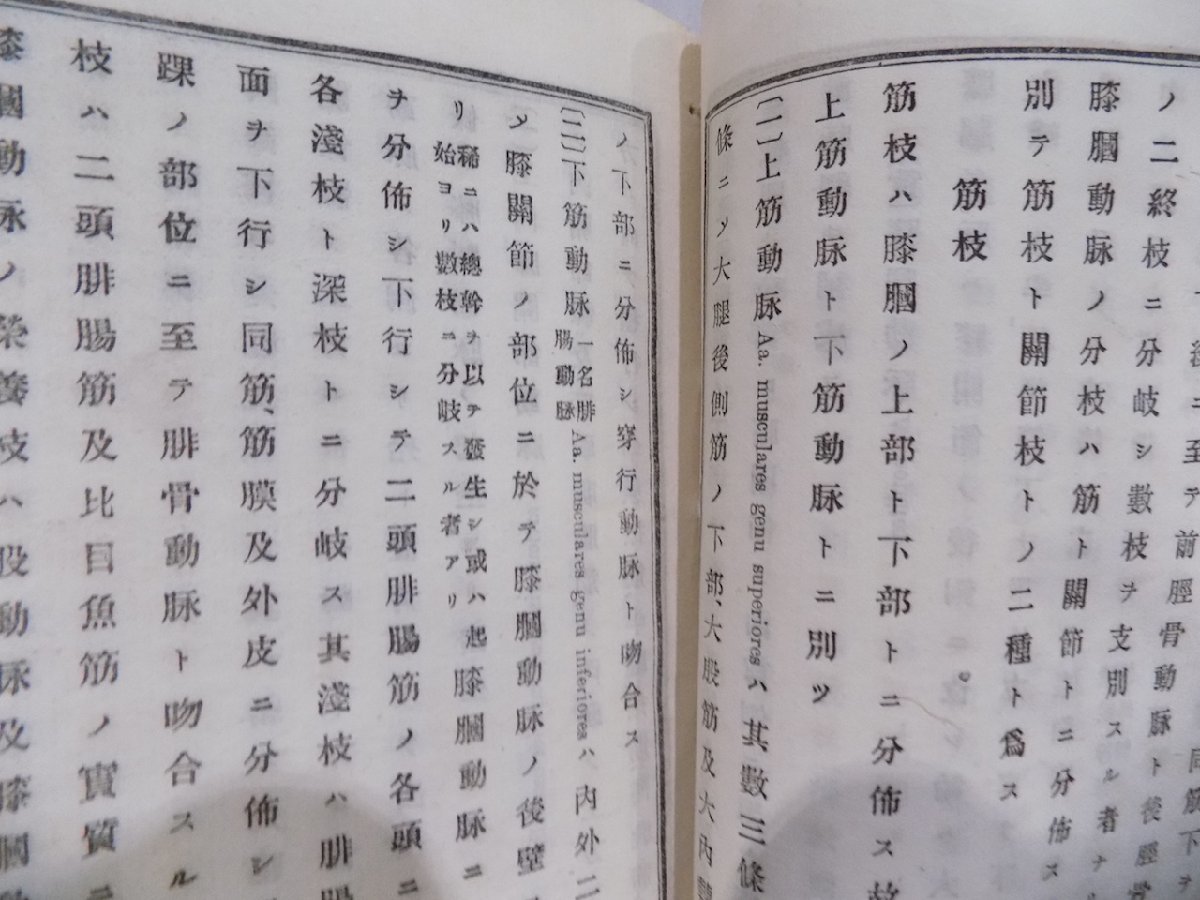 同筋下
深ニ至テ前脛骨動脈ト後脛骨
ノ二終枝ニ分岐シ數枝ヲ支別スル者ナ
膝膕動脈ノ分枝ハ筋ト關節トニ分佈ス
別テ筋枝ト關節枝トノ二種ト爲ス
筋枝
筋枝ハ膝膕ノ上部ト下部トニ分佈ス故
上筋動脈ト下筋動脈トニ別ツ
(一)上筋動脈 Aa. musculares genu superiores ハ其數三條
條ニ〆大腿後側筋ノ下部、大股筋及大内
ノ下部ニ分佈シ穿行動脈ト吻合ス
(二)下筋動脈 一名腓腸動脈 Aa. musculares genu inferiores ハ内外二
〆膝關節ノ部位ニ於テ膝膕動脈ノ後壁
リ稀ニハ總幹ヲ以テ發生シ或ハ起始ヨリ數枝ニ分岐スル者アリ膝膕動脈ニ
ヲ分佈シ下行シテ二頭腓腸筋ノ各頭ニ
各淺枝ト深枝トニ分岐ス其淺枝ハ腓腸
面ヲ下行シ同筋、筋膜及外皮ニ分佈シ
踝ノ部位ニ至テ腓骨動脈ト吻合スル
枝ハ二頭腓腸筋及比目魚筋ノ實質ニ
膝膕動脈ノ榮養枝ハ股動脈及膝膕動